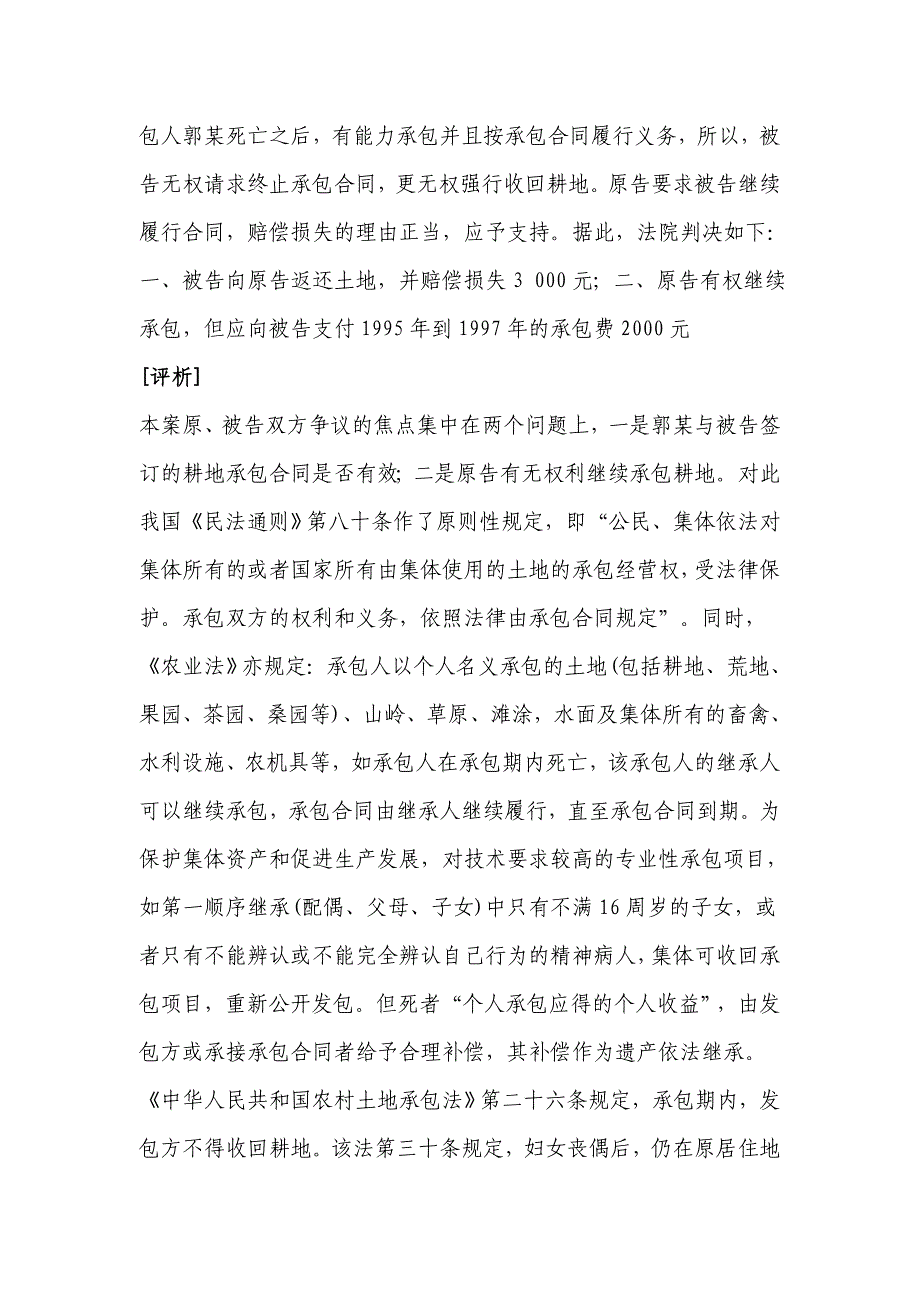 包人郭某死亡之后，有能力承包并且按承包合同履行义务，所以，被
告无权请求终止承包合同，更无权强行收回耕地。原告要求被告继续
履行合同，赔偿损失的理由正当，应予支持。据此，法院判决如下：
一、被告向原告返还土地，并赔偿损失3 000元；二、原告有权继续
承包，但应向被告支付1995年到1997年的承包费2000元
[评析]
本案原、被告双方争议的焦点集中在两个问题上，一是郭某与被告签
订的耕地承包合同是否有效；二是原告有无权利继续承包耕地。对此
我国《民法通则》第八十条作了原则性规定，即“公民、集体依法对
集体所有的或者国家所有由集体使用的土地的承包经营权，受法律保
护。承包双方的权利和义务，依照法律由承包合同规定”。同时，
《农业法》亦规定：承包人以个人名义承包的土地(包括耕地、荒地、
果园、茶园、桑园等)、山岭、草原、滩涂，水面及集体所有的畜禽、
水利设施、农机具等，如承包人在承包期内死亡，该承包人的继承人
可以继续承包，承包合同由继承人继续履行，直至承包合同到期。为
保护集体资产和促进生产发展，对技术要求较高的专业性承包项目，
如第一顺序继承(配偶、父母、子女)中只有不满16周岁的子女，或
者只有不能辨认或不能完全辨认自己行为的精神病人，集体可收回承
包项目，重新公开发包。但死者“个人承包应得的个人收益”，由发
包方或承接承包合同者给予合理补偿，其补偿作为遗产依法继承。
《中华人民共和国农村土地承包法》第二十六条规定，承包期内，发
包方不得收回耕地。该法第三十条规定，妇女丧偶后，仍在原居住地